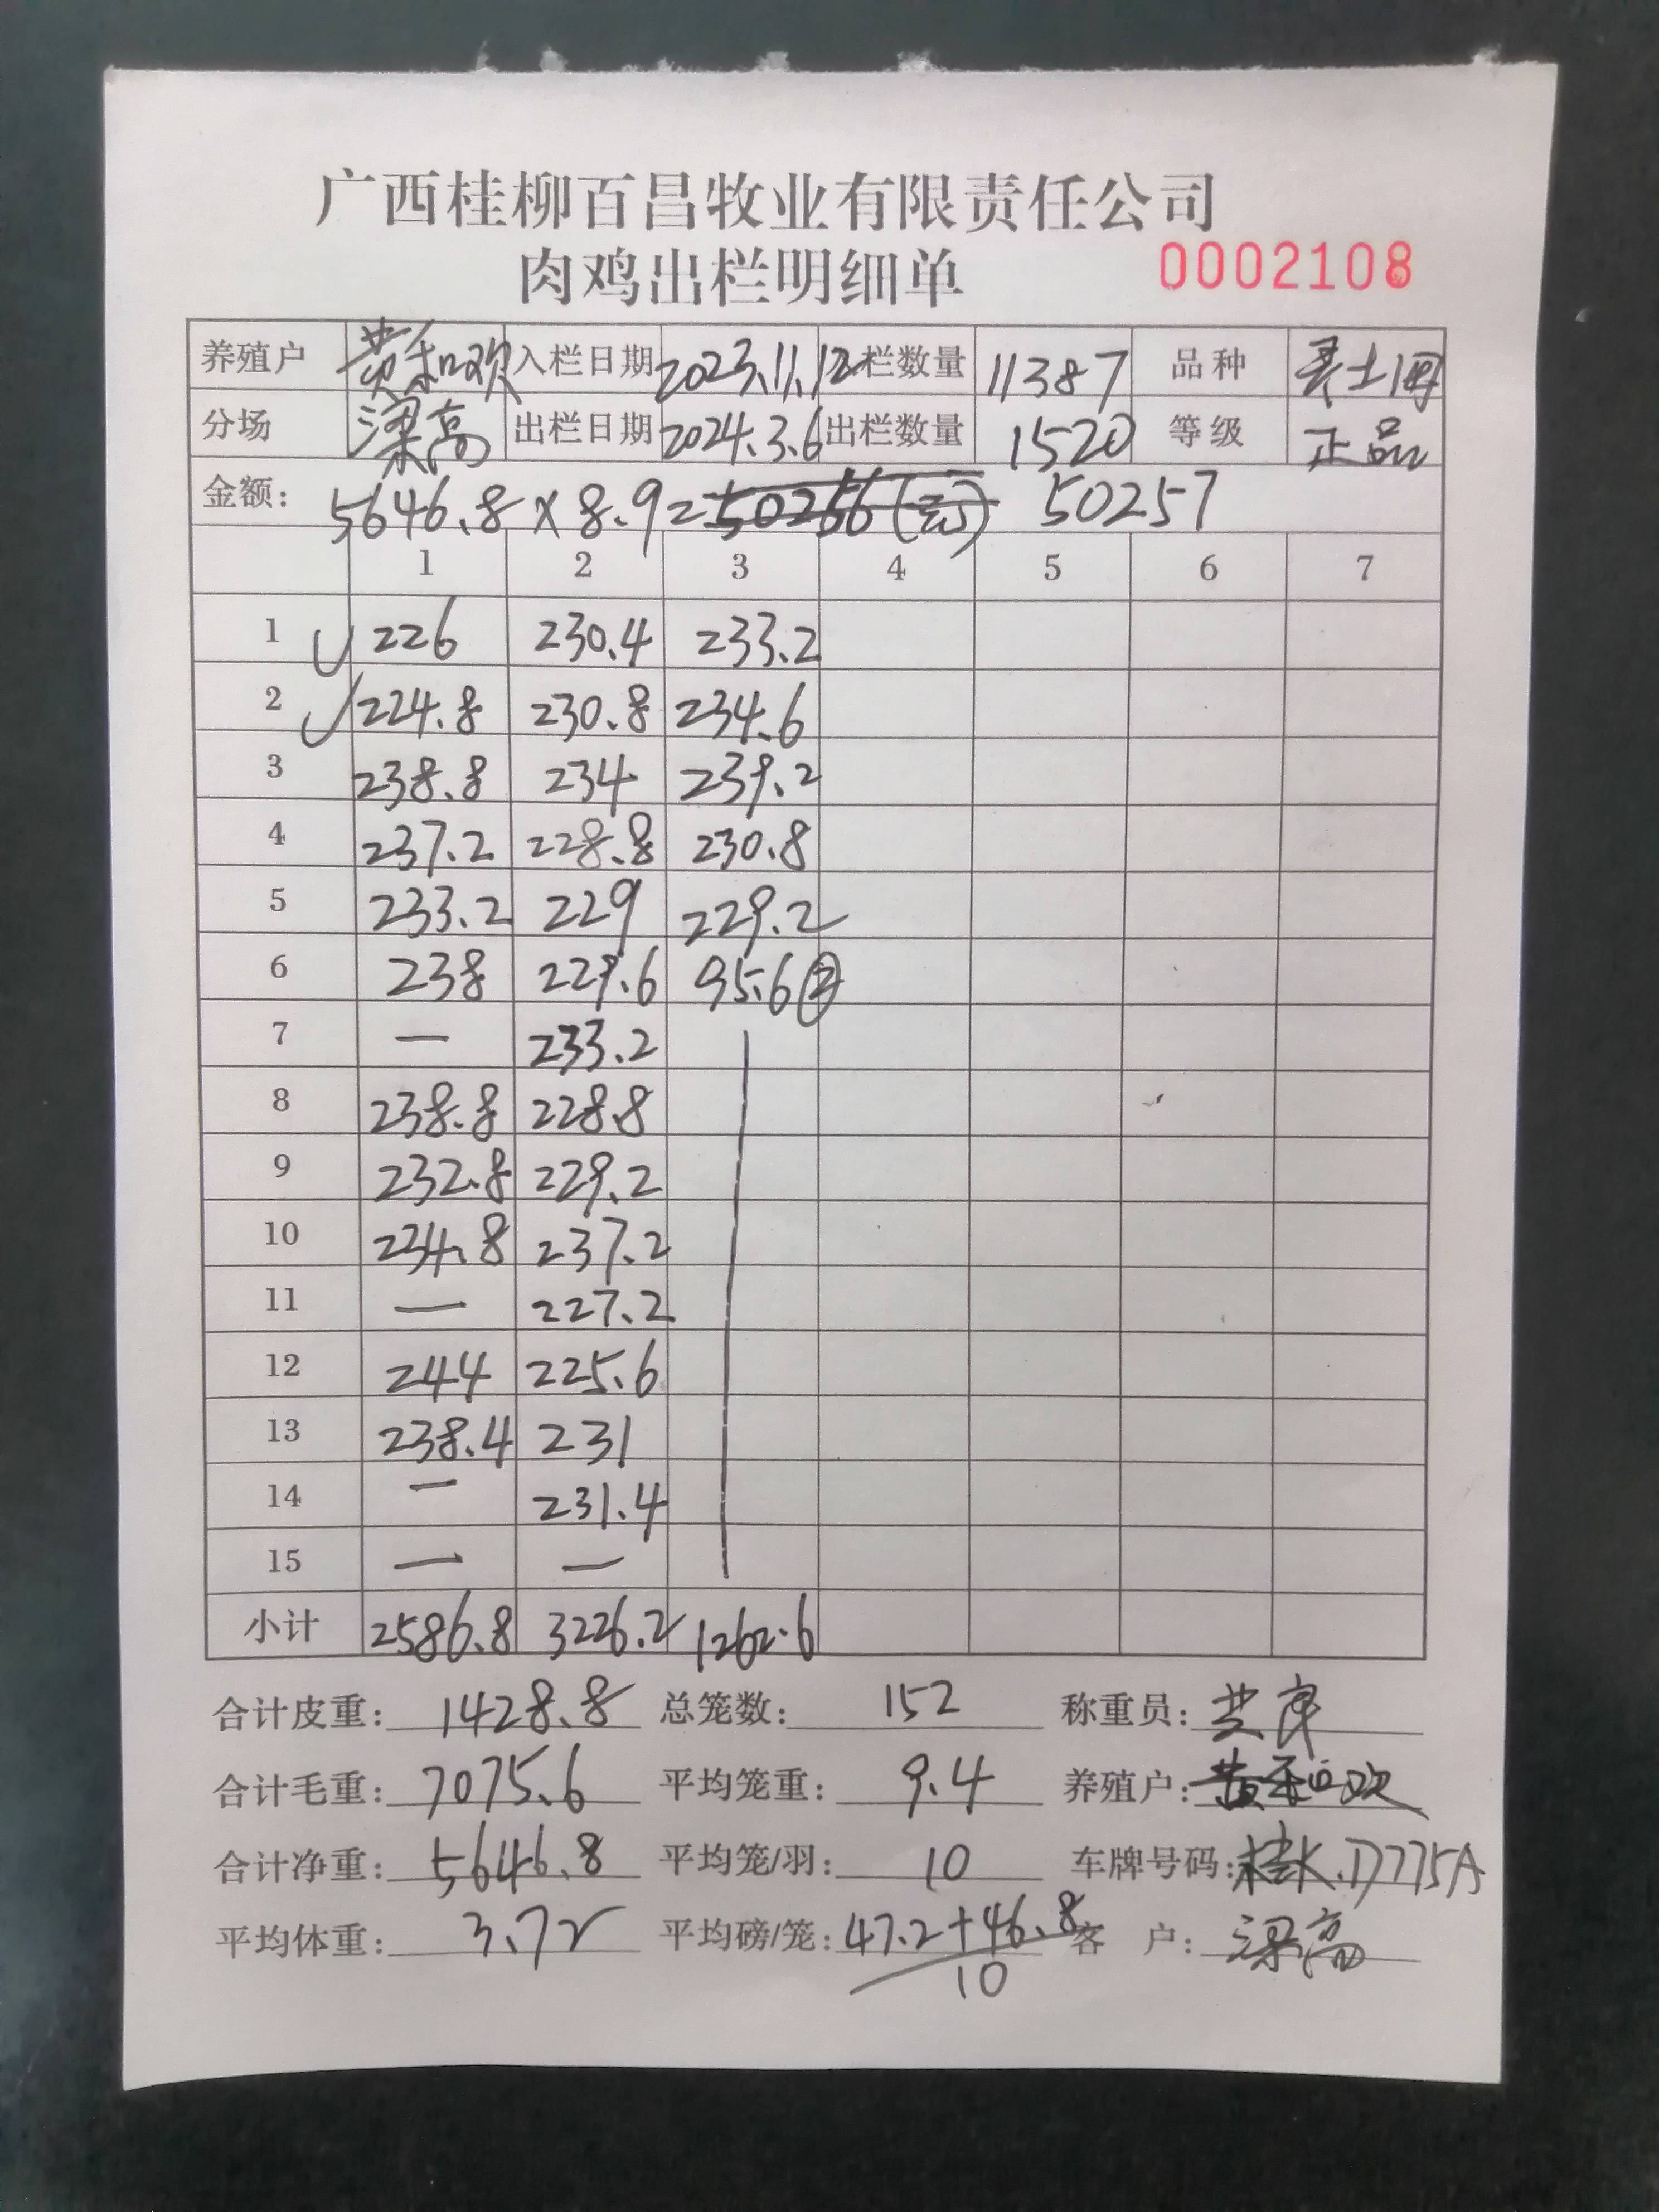 广西桂柳百昌牧业有限责任公司
肉鸡出栏明细单 0002108
养殖户 黄和欢 入栏日期 2023.11.12 栏数量 11387 品种
分场 梁高 出栏日期 2024.3.6 出栏数量 1520 等级 正品
金额: 5646.8×8.9=50256(元) 50257
1 2 3 4 5 6 7
1 226 230.4 233.2
2 224.8 230.8 234.6
3 238.8 234 239.2
4 237.2 228.8 230.8
5 233.2 229 229.2
6 238 229.6 95.6②
7 — 233.2
8 238.8 228.8
9 232.8 229.2
10 234.8 237.2
11 — 227.2
12 244 225.6
13 238.4 231
14 — 231.4
15 — —
小计 2586.8 3226.2 1262.6
合计皮重: 1428.8 总笼数: 152 称重员:
合计毛重: 7075.6 平均笼重: 9.4 养殖户: 黄和欢
合计净重: 5646.8 平均笼/羽: 10 车牌号码: 桂K.D775A
平均体重: 3.72 平均磅/笼: 47.2+46.8 客 户: 梁高
10